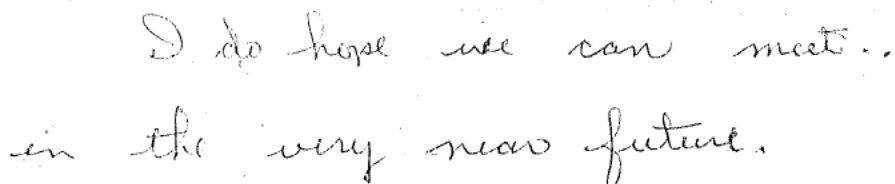 I do hope we can meet..
in the very near future.